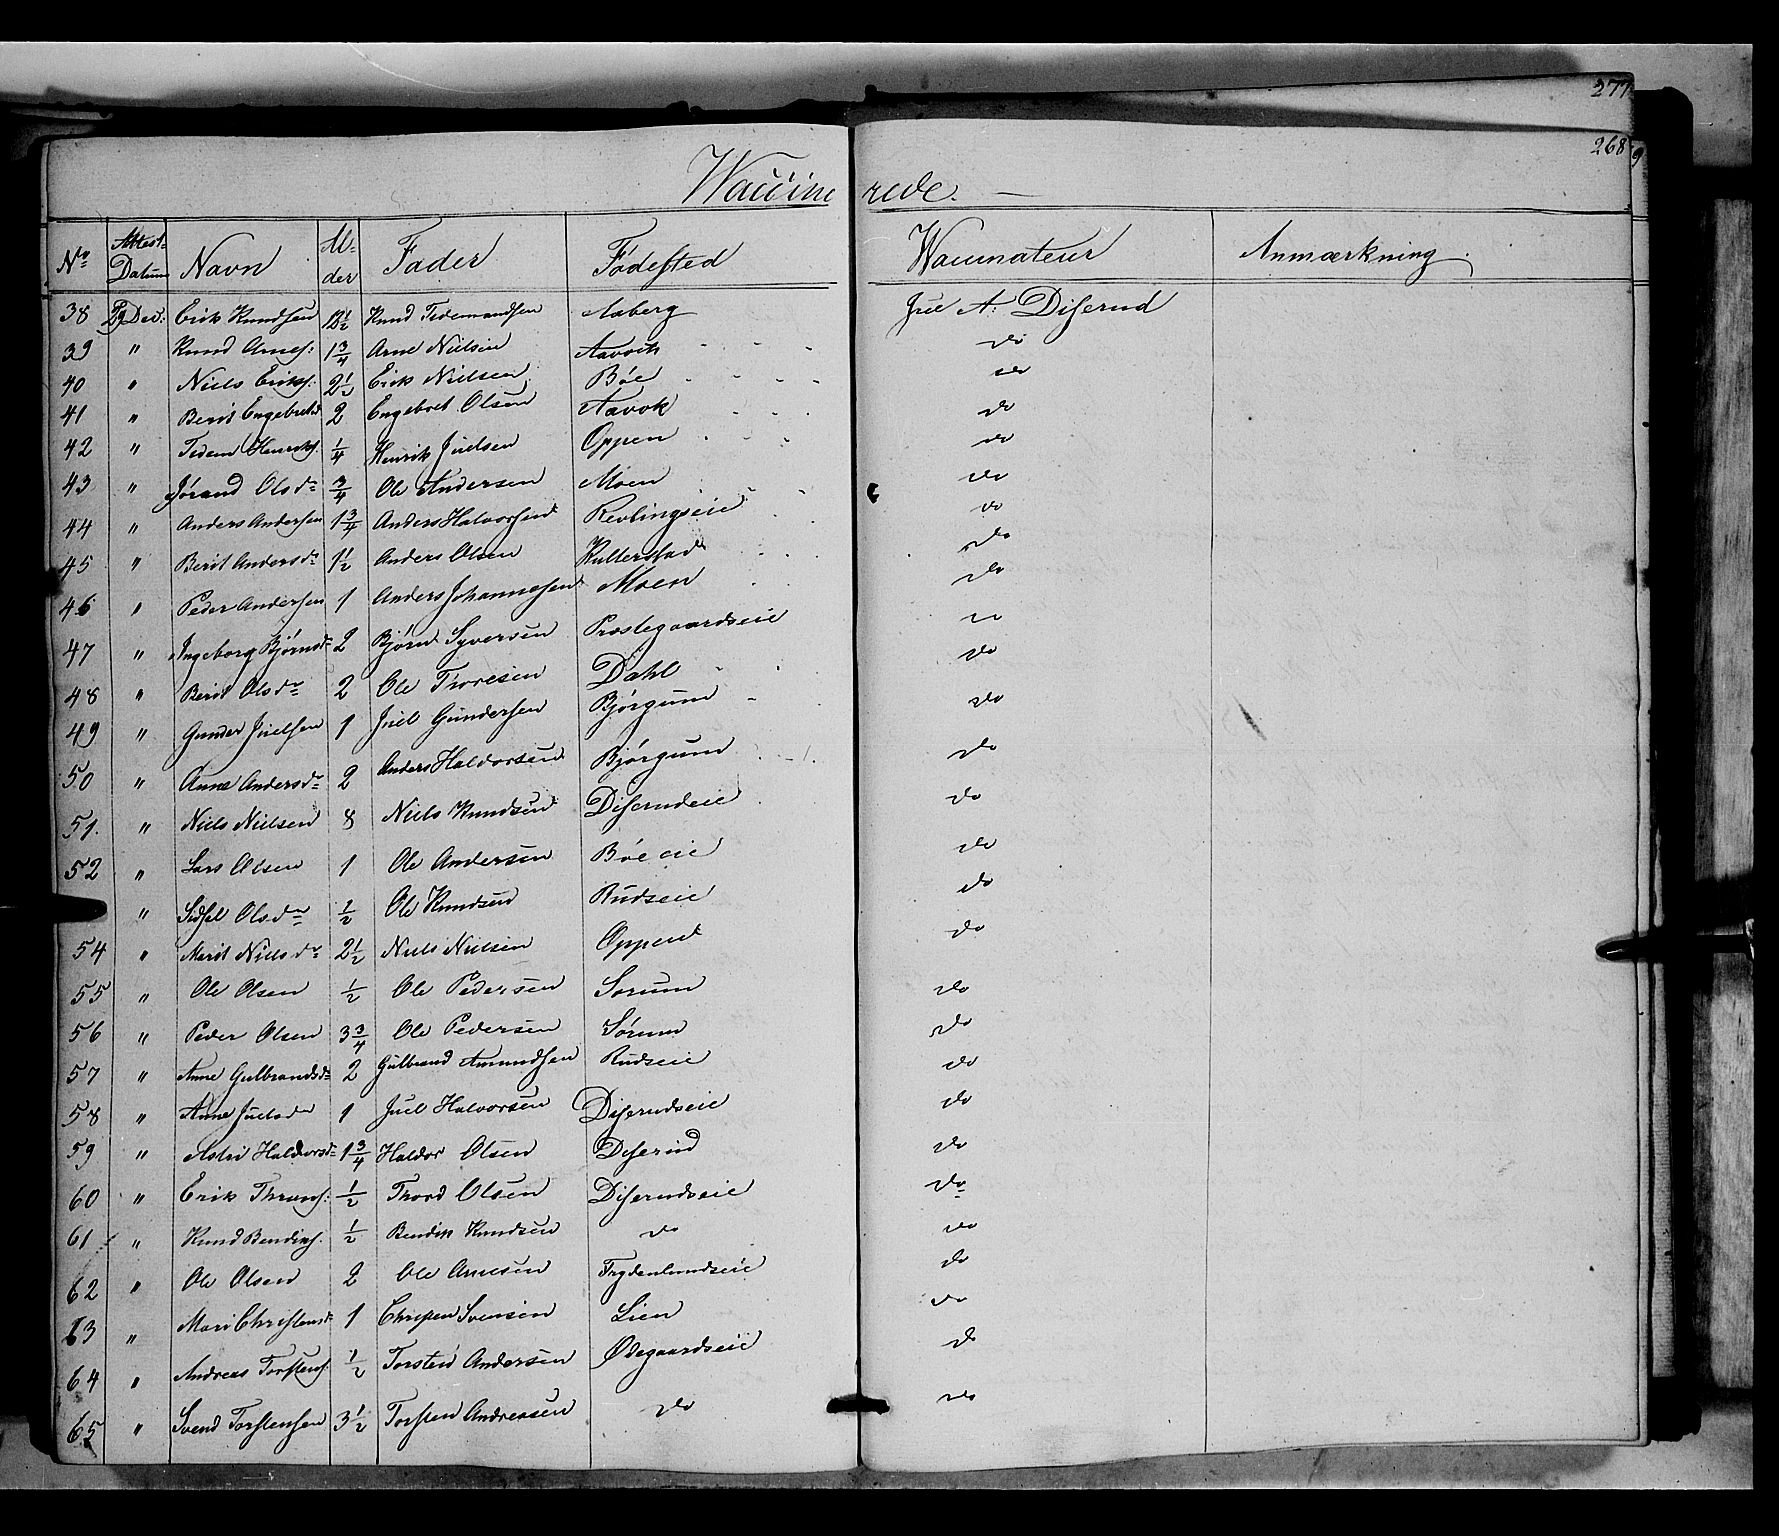 277
268
Waccinerede. —
No Attest-Datum Navn Al-der Fader Födested Waccinateur Anmærkning.
38 29 Dec: Erik Knudsen 1½ Knud Tidemandsen Aaberg Juel A. Diserud
39 " Knud Arnes: 1¾ Arne Nielsen Aavok do
40 " Niels Eriks: 2½ Erik Nielsen Böe do
41 " Berit Engebretsd 2 Engebret Olsen Aavok do
42 " Tidem Henriks. ¼ Henrik Juelsen Oppen do
43 " Jórand Olsdr ¾ Ole Andersen Moen do
44 " Anders Andersen 1¾ Anders Halvorsen Revlingseie do
45 " Berit Andersdr 1½ Anders Olsen Kulterstad do
46 " Peder Andersen 1 Anders Johannesen Moen do
47 " Ingeborg Bjórnsdr 2 Bjórn Syversen Prestegaardseie do
48 " Berit Olsdr 2 Ole Thoresen Dahl do
49 " Gunder Juelsen 1 Juel Gundersen Bjórgum do
50 " Anne Andersdr 2 Anders Haldorsen Bjórgum do
51. " Niels Nielsen 8 Niels Knudsen Diserudeie do
52 " Lars Olsen 1 Ole Andersen Böe eie do
" Sidsel Olsdr ½ Ole Knudsen Rudseie do
54 " Marit Nielsdr 2½ Niels Nielsen Oppen do
55 " Ole Olsen ½ Ole Pedersen Sorum do
56 " Peder Olsen 3¾ Ole Pedersen Sórum do
57 " Anne Gulbrandsdr 2 Gulbrand Amundsen Rudseie do
58 " Anne Juelsdr 1 Juel Halvorsen Diserudseie do
59 " Astri Haldorsdr 1¾ Haldor Olsen Diserud do
60 " Erik Throns: ½ Thord Olsen Diserudseie do
61 " Knud Bendiks. ½ Bendik Knudsen do do
62 " Ole Olsen 2 Ole Arnesen Frydenlundseie do
63 " Mari Christensdr 1 Christen Svensen Lien do
64 " Andreas Torstens. ½ Torsten Andersen Ødegaardseie do
65 " Svend Torstensen 3½ Torsten Andreasen do do